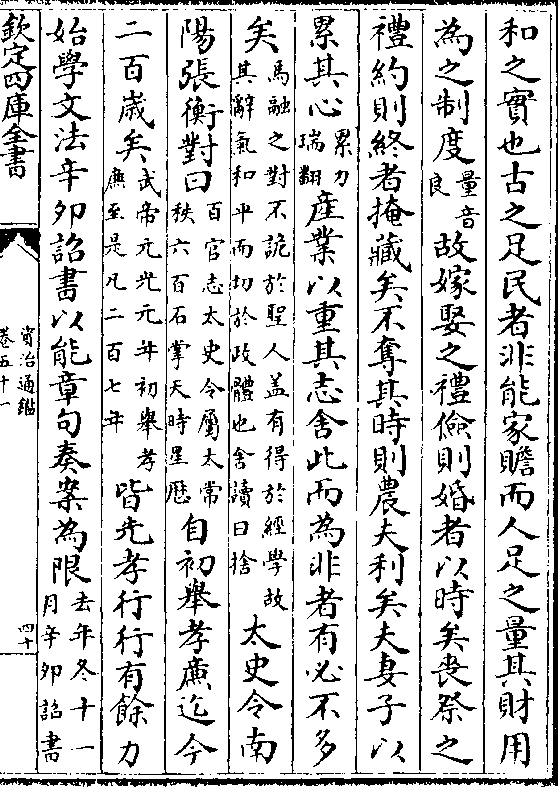 和之實也古之足民者非能家贍而人足之量其財用
為之制度量音良故嫁娶之禮儉則婚者以時矣喪祭之
禮約則終者掩藏矣不奪其時則農夫利矣夫妻子以
累其心累力瑞翻產業以重其志舍此而為非者有必不多
矣馬融之對不詭於聖人盖有得於經學故其辭氣和平而切於政體也舍讀曰捨太史令南
陽張衡對曰百官志太史令屬太常秩六百石掌天時星厯自初舉孝廉迄今
二百歲矣武帝元光元年初舉孝廉至是凡二百七年皆先孝行行有餘力
始學文法辛卯詔書以能章句奏案為限去年冬十一月辛卯詔書
欽定四庫全書
資治通鑑
卷五十一
四十